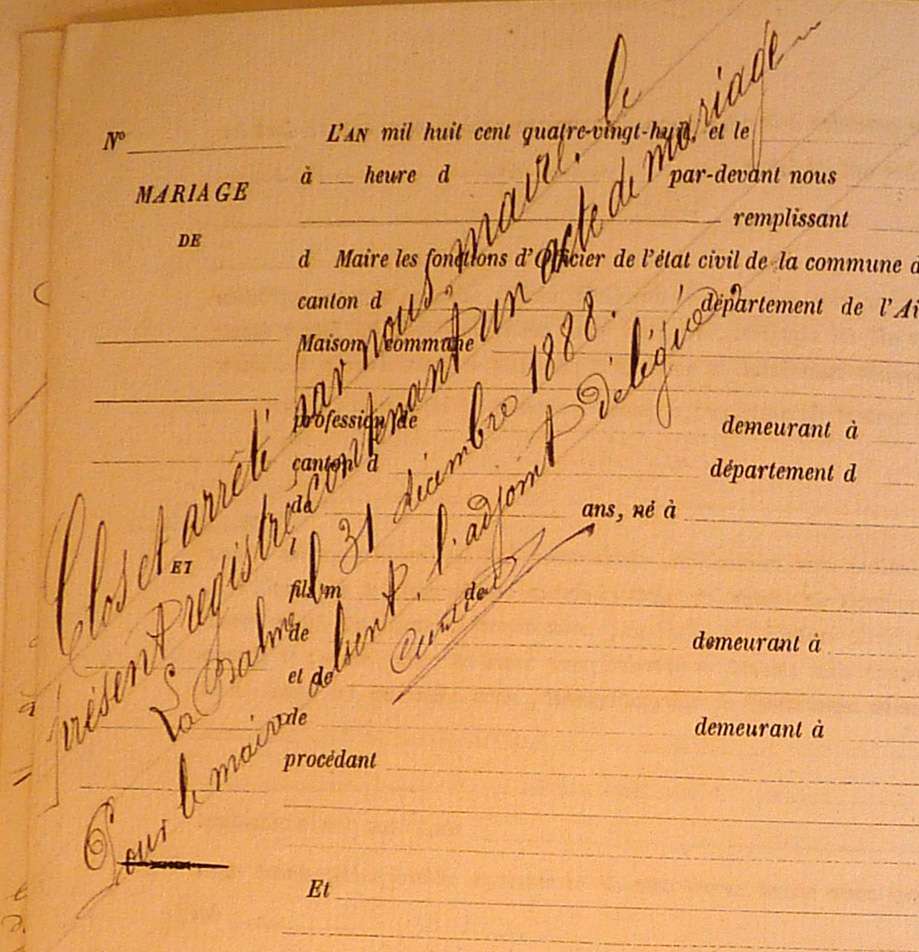 N°
MARIAGE
DE
ET
L'AN mil huit cent quatre-vingt-huit, et le
à heure d par-devant nous
remplissant
d Maire les fonctions d'Officier de l'état civil de la commune d
canton d département de l'Ai
Maison commune
profession de demeurant à
canton d département d
de ans, né à
fils m de
de demeurant à
et de
de demeurant à
procédant
Et
Clos et arrêté par nous, maire, le
présent registre contenant un acte de mariage
La Balme le 31 décembre 1888.
Pour le maire absent, l'adjoint délégué